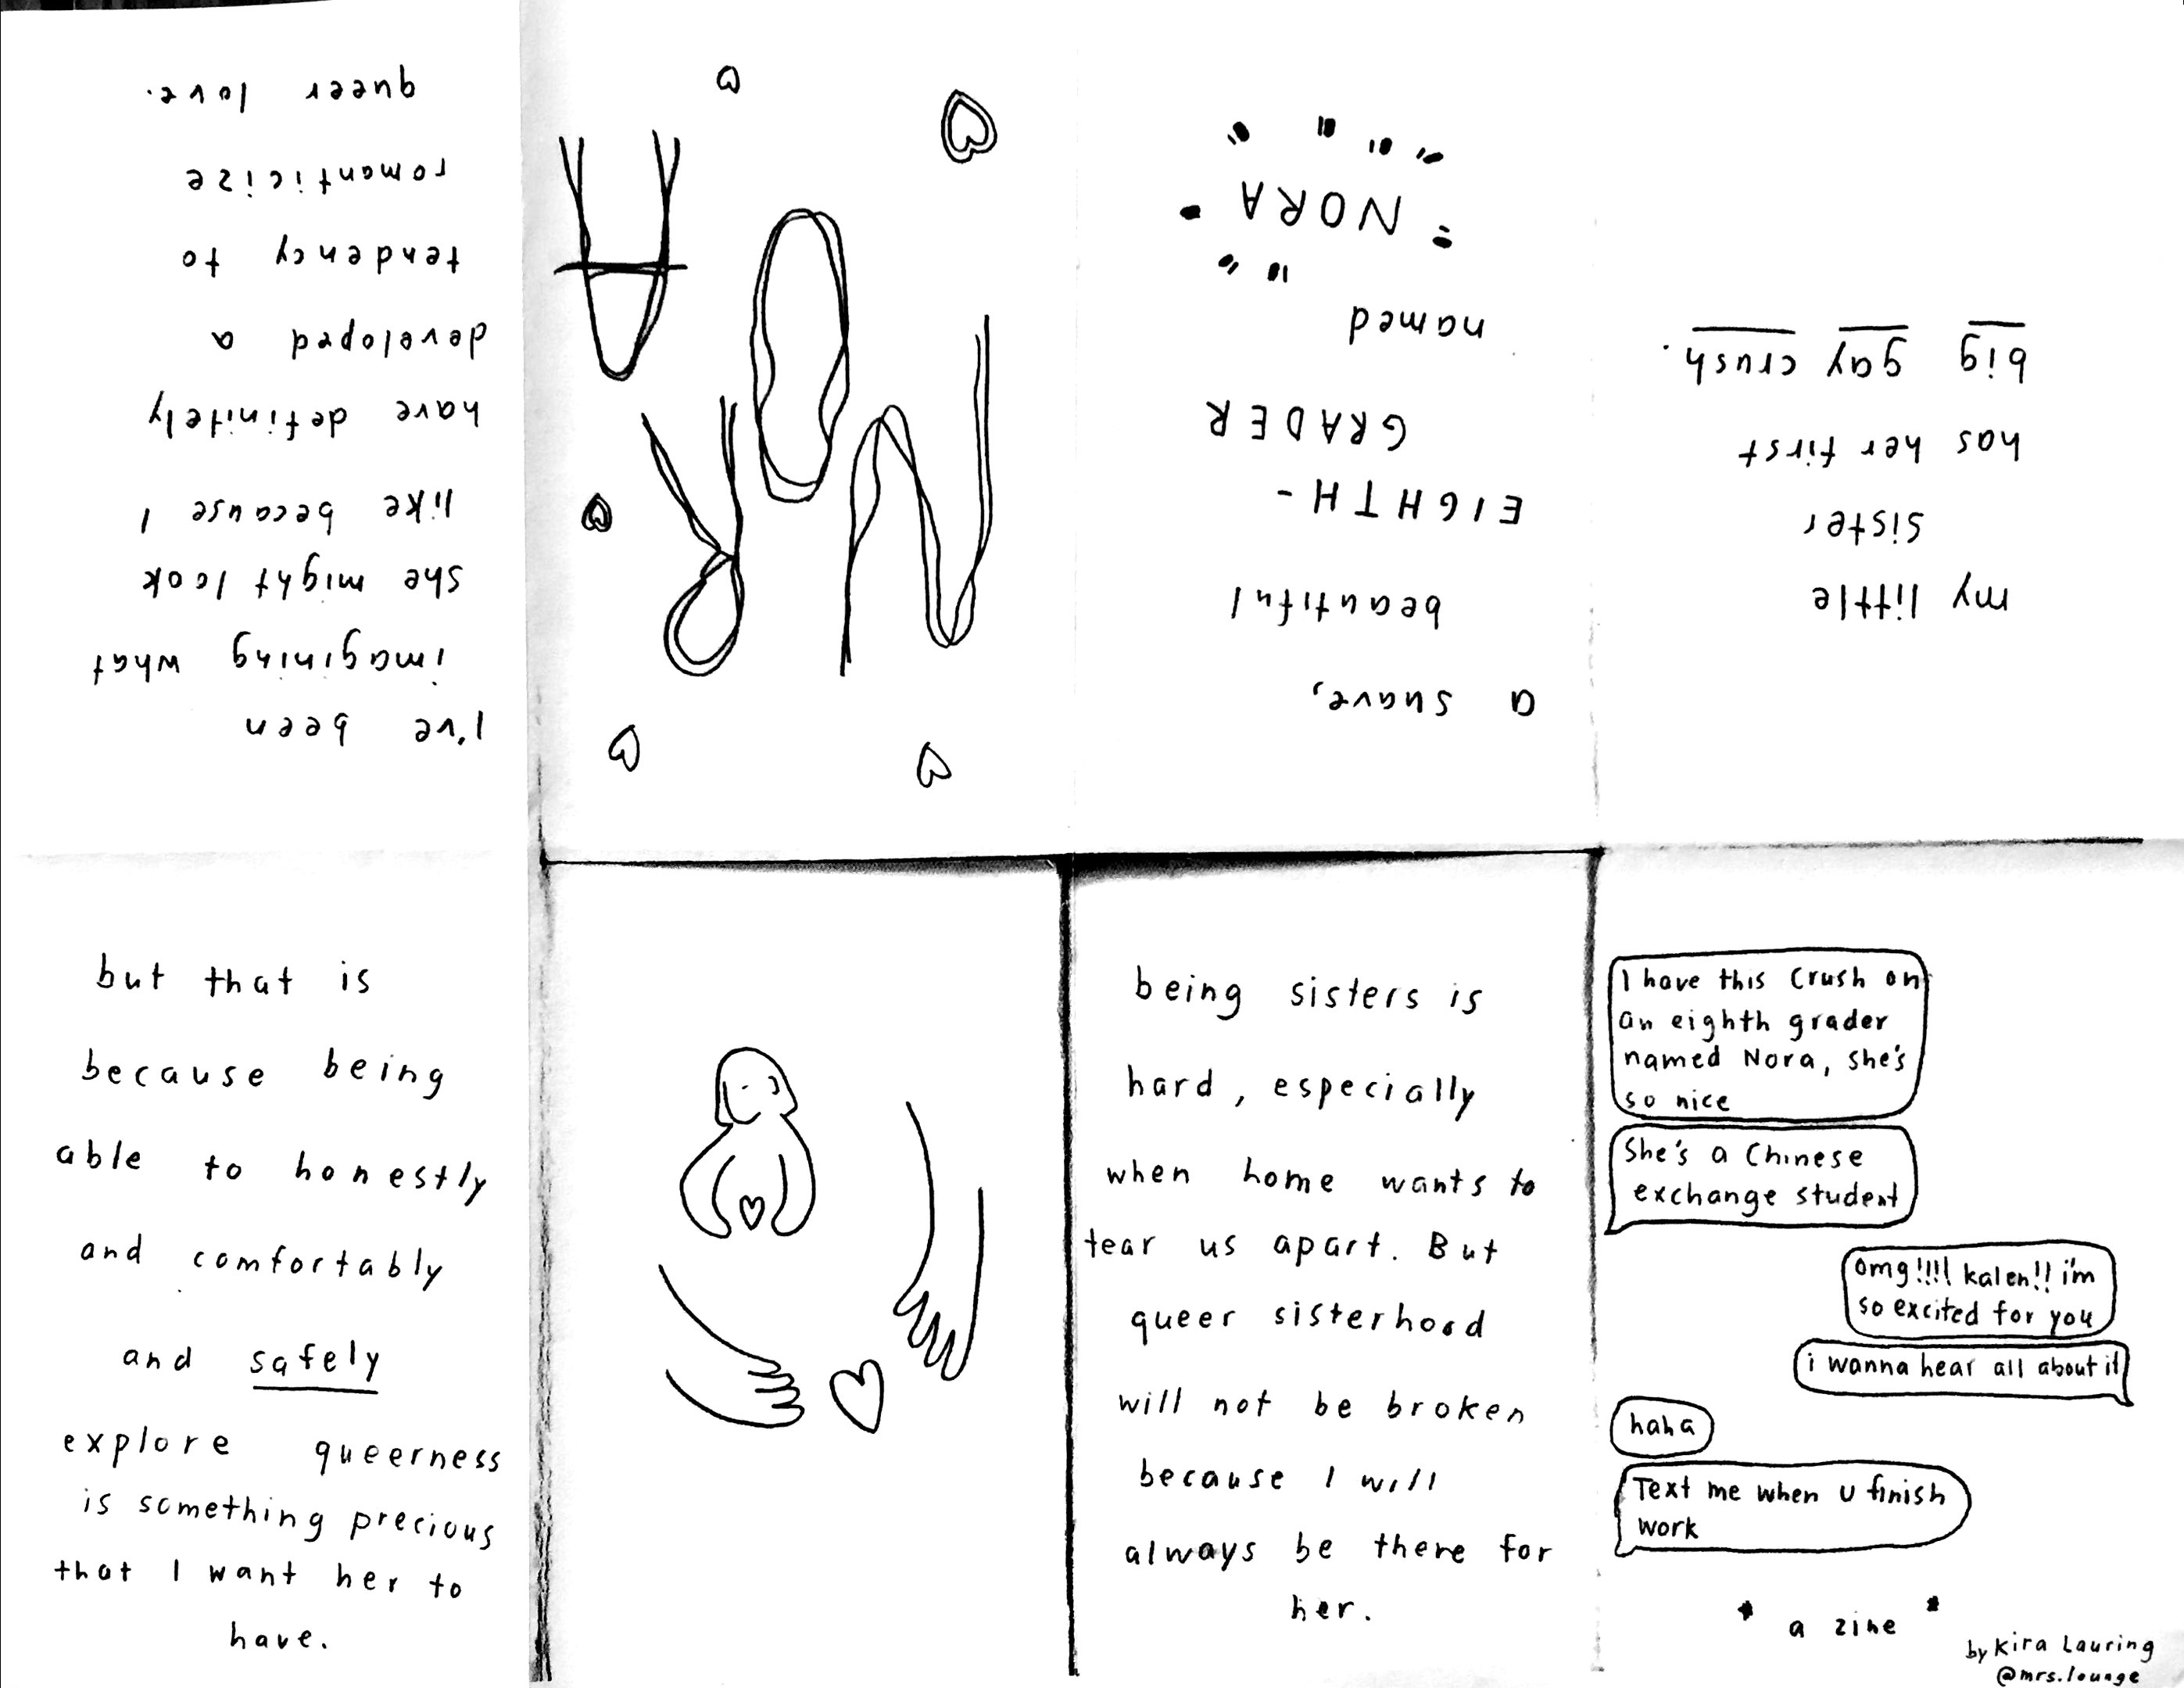 I have this crush on
an eighth grader
named Nora, she's
so nice
She's a Chinese
exchange student
omg!!!! kalen!! i'm
so excited for you
i wanna hear all about it
haha
Text me when u finish
work
* a zine *
by Kira Lauring
@mrs.lounge
my little
sister
has her first
big gay crush.
a suave,
beautiful
EIGHTH-
GRADER
named
NORA
NORA
I've been
imagining what
she might look
like because I
have definitely
developed a
tendency to
romanticize
queer love.
but that is
because being
able to honestly
and comfortably
and safely
explore queerness
is something precious
that I want her to
have.
being sisters is
hard, especially
when home wants to
tear us apart. But
queer sisterhood
will not be broken
because I will
always be there for
her.